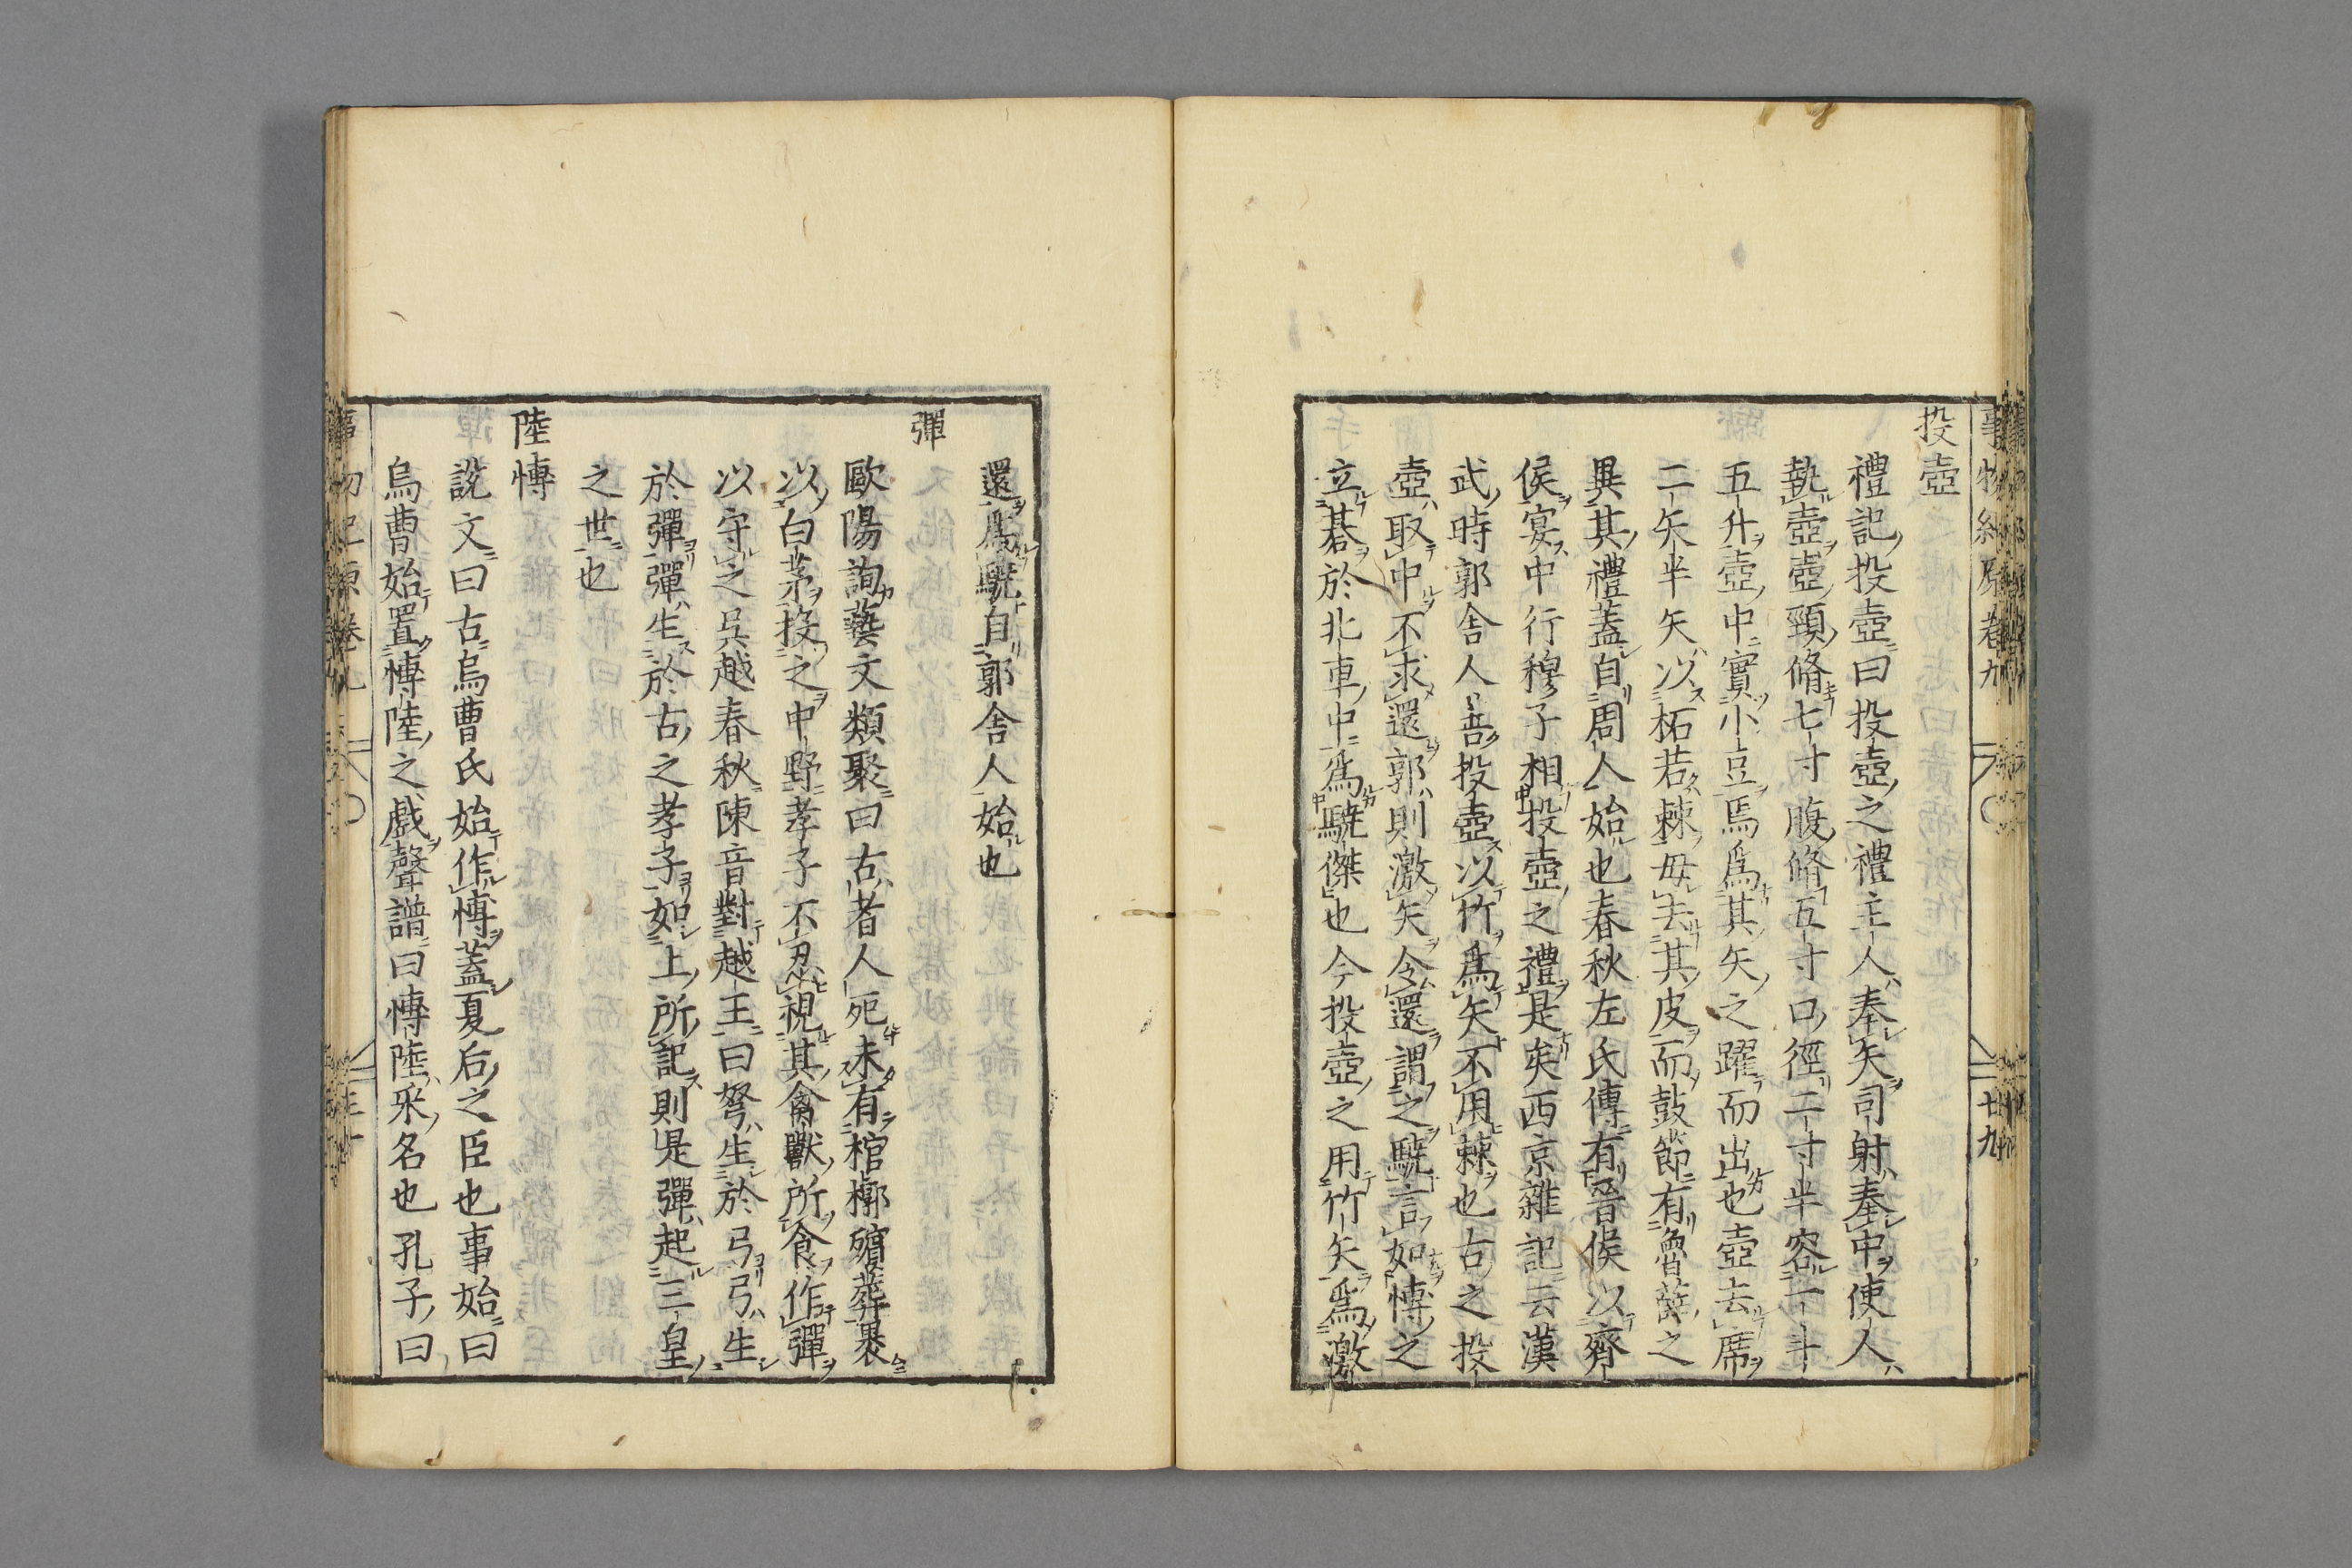 事物紀原卷九 十九
投壺
禮記投壺曰投壺之禮主人奉矢司射奉中使人
執壺壺頸脩七寸腹脩五寸口徑二寸半容一斗
五升壺中實小豆焉爲其矢之躍而出也壺去席
二矢半矢以柘若棘毋去其皮而鼓節有魯薛之
異其禮蓋自周人始也春秋左氏傳有晉侯以齊
侯宴中行穆子相投壺之禮是矣西京雜記云漢
武時郭舍人善投壺以竹爲矢不用棘也古之投
壺取中不求還郭則激矢令還謂之驍言如愽之
立碁於北車中爲驍傑也今投壺之用竹矢爲激
還爲驍自郭舍人始也
彈
歐陽詢藝文類聚曰古者人死未有棺槨殯葬裹
以白茅投之中野孝子不忍視其禽獸所食作彈
以守之吳越春秋陳音對越王曰弩生於弓弓生
於彈彈生於古之孝子如上所記則是彈起三皇
之世也
陸愽
說文曰古烏曹氏始作愽蓋夏后之臣也事始曰
烏曹始置愽陸之戲聲譜曰愽陸采名也孔子曰